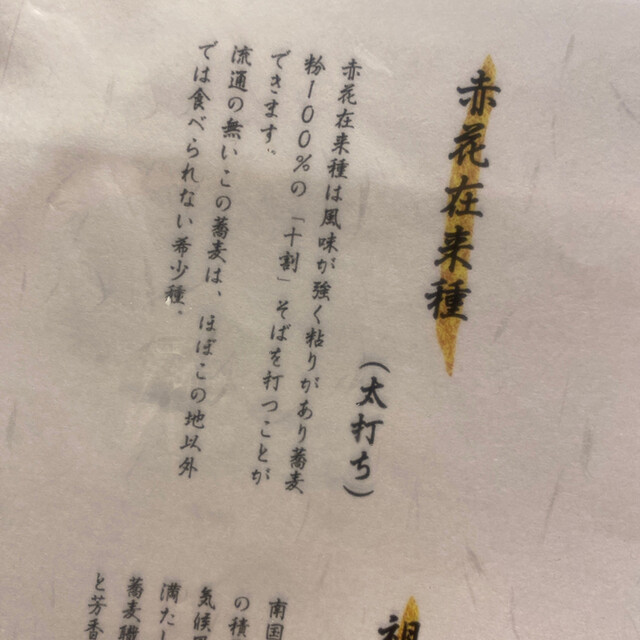 赤花在来種
（太打ち）
赤花在来種は風味が強く粘りがあり蕎麦
粉100％の「十割」そばを打つことが
できます。
流通の無いこの蕎麦は、ほぼこの地以外
では食べられない希少種。
南国
の積
気候
満たし
蕎麦
と芳香